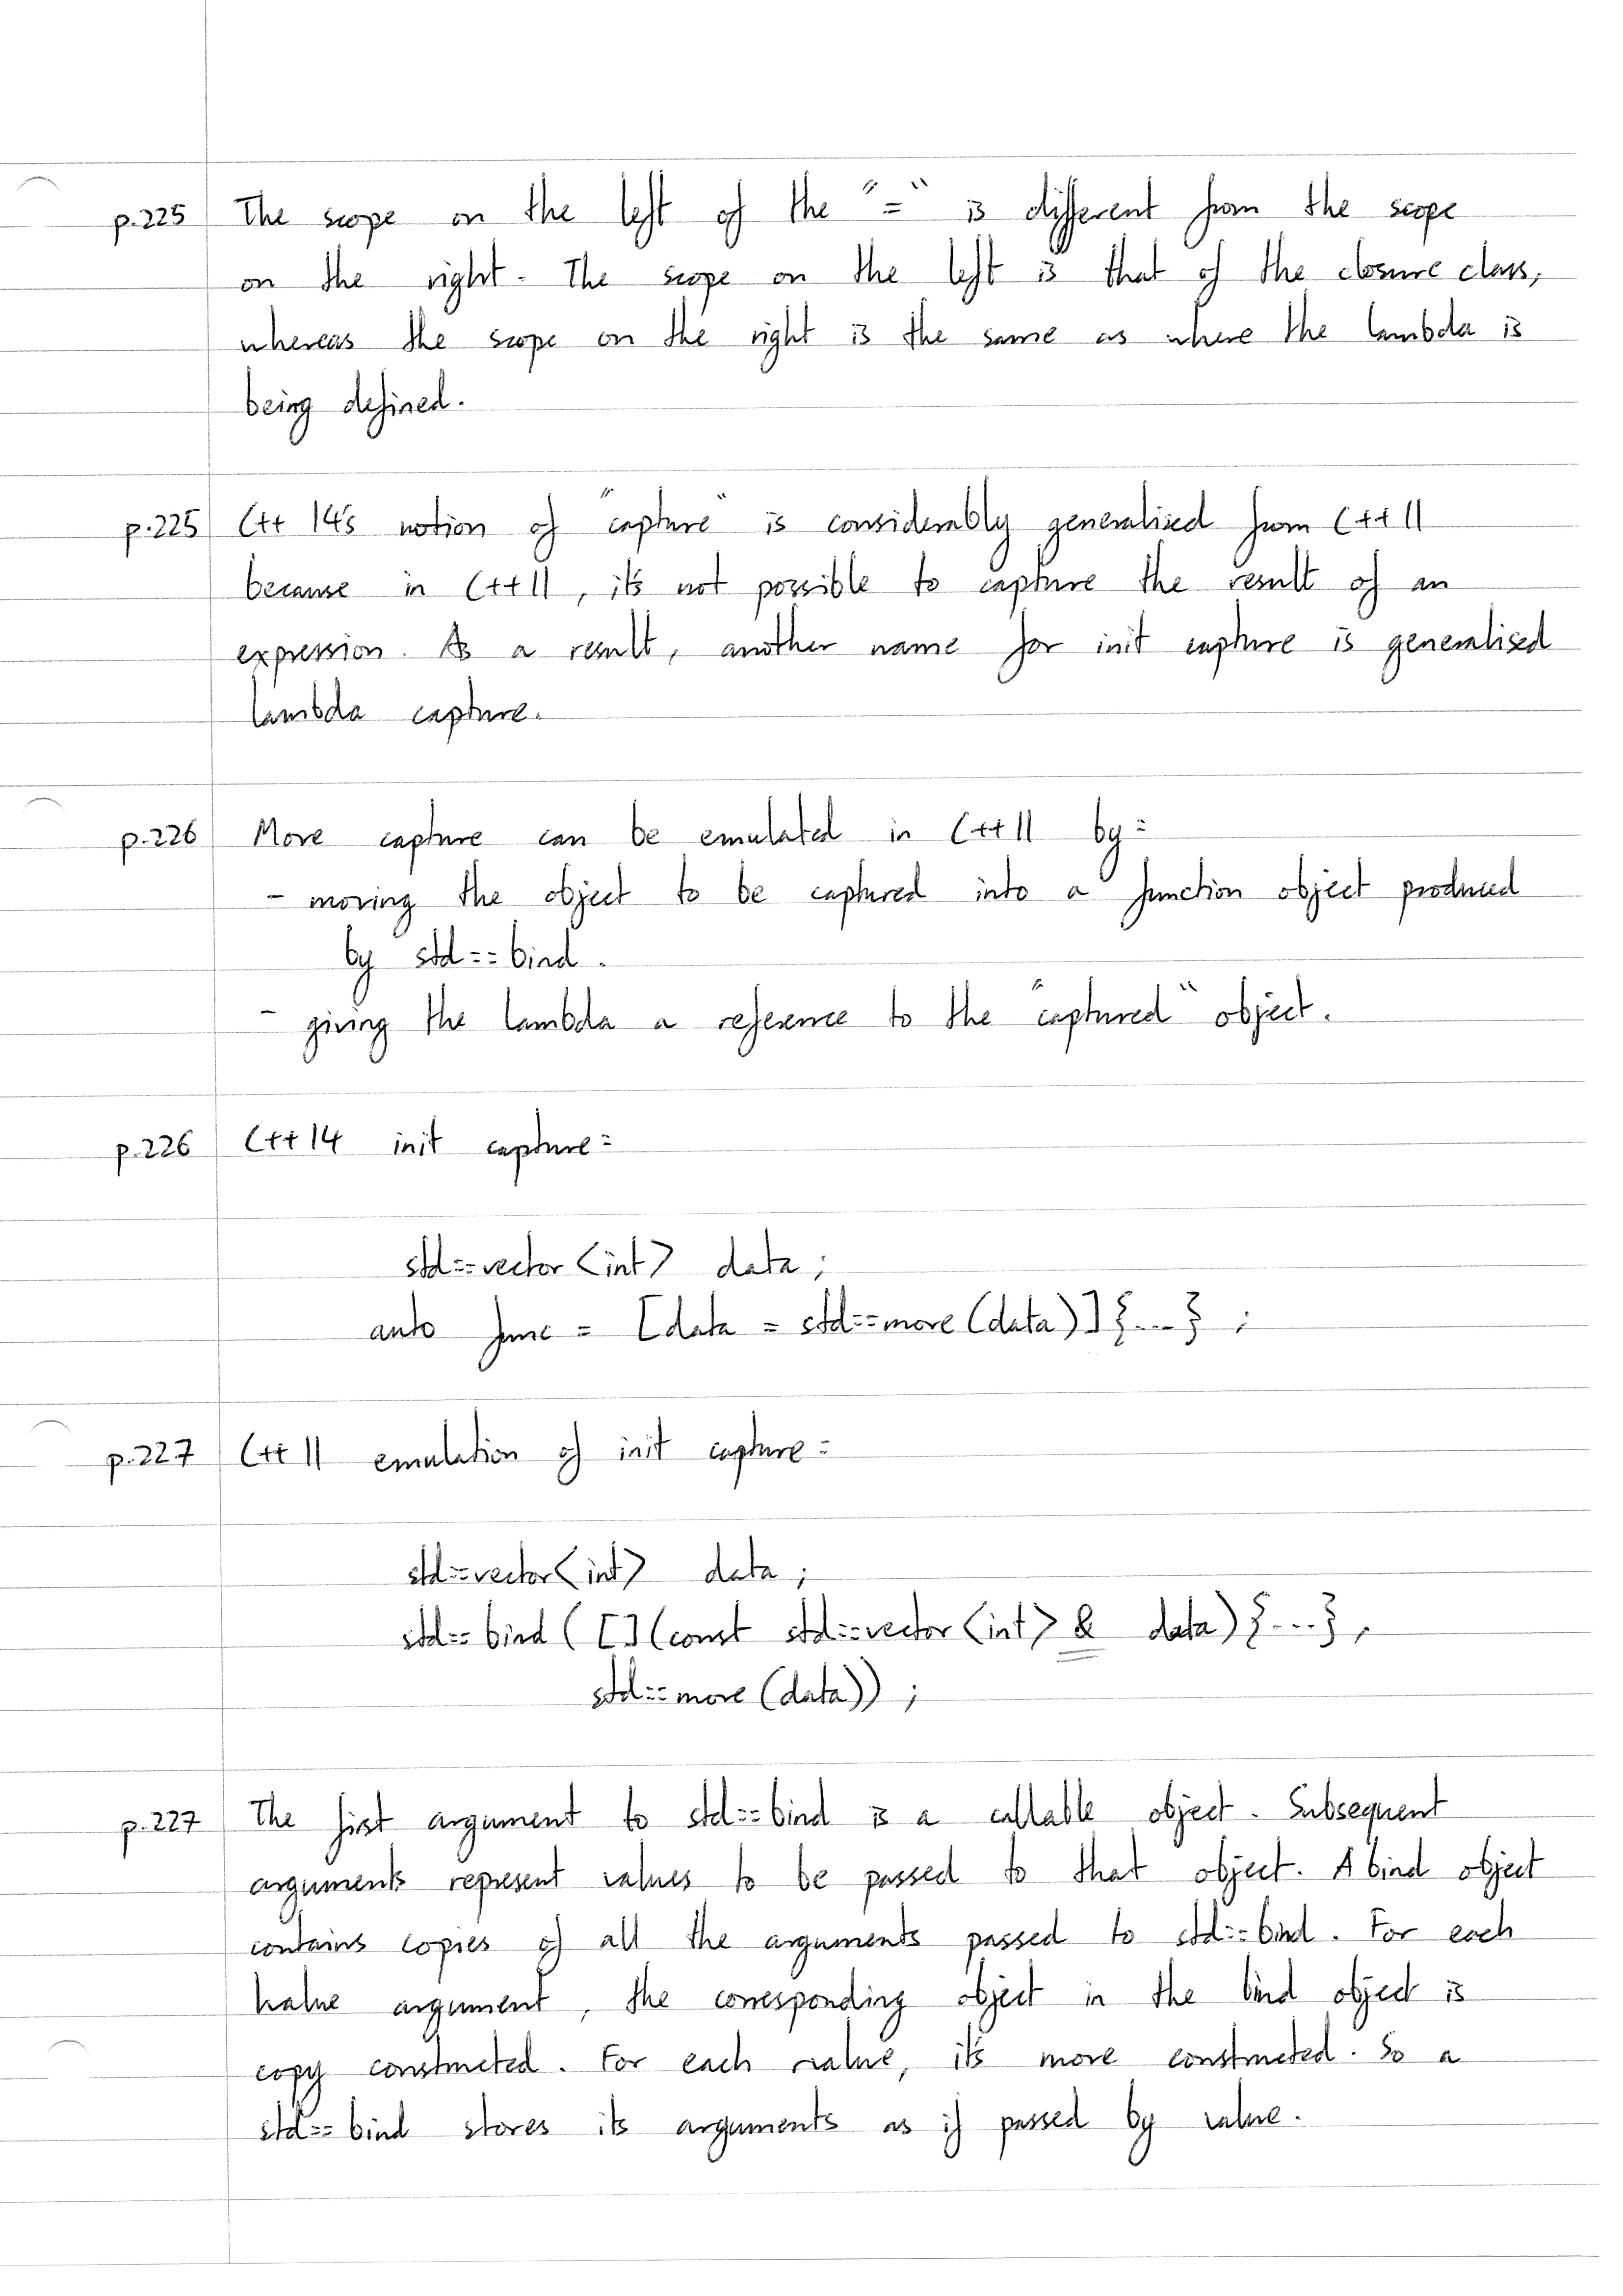 p.225 The scope on the left of the "=" is different from the scope
on the right. The scope on the left is that of the closure class,
whereas the scope on the right is the same as where the lambda is
being defined.
p.225 C++ 14's notion of "capture" is considerably generalised from C++11
because in C++11, it's not possible to capture the result of an
expression. As a result, another name for init capture is generalised
lambda capture.
p.226 Move capture can be emulated in C++11 by:
- moving the object to be captured into a function object produced
by std::bind.
- giving the lambda a reference to the "captured" object.
p.226 C++14 init capture:
std::vector<int> data;
auto func = [data = std::move(data)]{...};
p.227 C++11 emulation of init capture:
std::vector<int> data;
std::bind([](const std::vector<int>& data){...},
std::move(data));
p.227 The first argument to std::bind is a callable object. Subsequent
arguments represent values to be passed to that object. A bind object
contains copies of all the arguments passed to std::bind. For each
lvalue argument, the corresponding object in the bind object is
copy constructed. For each rvalue, it's move constructed. So a
std::bind stores its arguments as if passed by value.